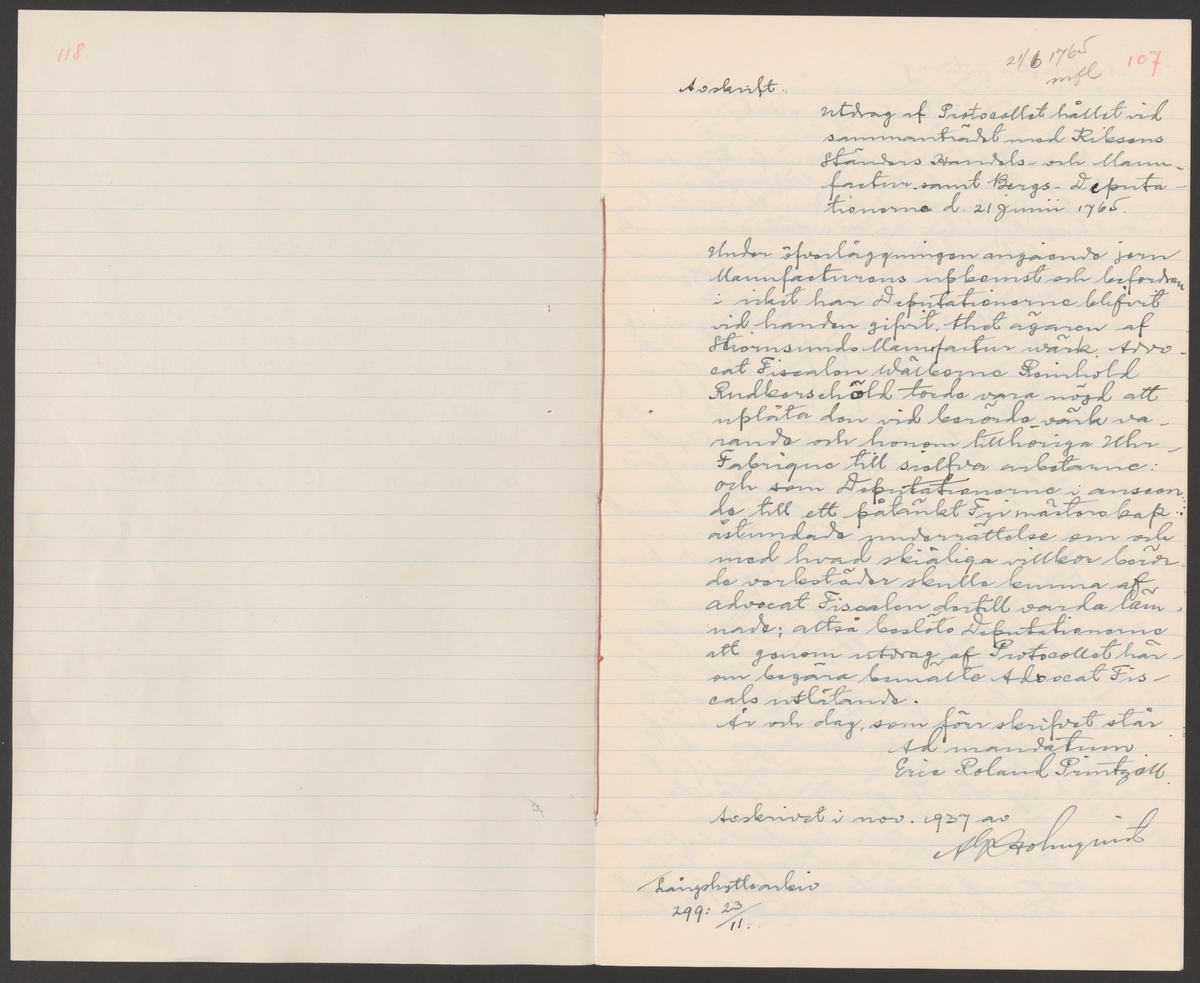 118.
21/6 1765
107
Avskrift.
Utdrag af Protocollet hållet vid
sammanträdet med Riksens
Ständers Handels- och Manu-
factur samt Bergs- Deputa-
tionerne d. 21 junii 1765.
Under öfverläggningen angående jern
Manufacturens upkomst och befordran
i riket har Deputationerne blifvit
vid handen gifvit, thet ägaren af
Stiernsunds Manufactur wärk Advo-
cat Fiscalen Wälborne Reinhold
Rudkerschöld torde vara nögd att
uplåta den vid berörde värk va-
rande och honom tillhöriga Uhr-
Fabrique till sielfva arbetarne:
och som Deputationerne i anseen-
de till ett påtänkt Fri mästerskap
åstundade underrättelse om och
med hvad skiäliga villkor berör-
de verkstäder skulle kunna af
advocat Fiscalen dertill varda läm-
nade; altså beslöto Deputationerne
att genom utdrag af Protocollet här-
om begära bemälte Advocat Fis-
cals utlåtande.
År och dag, som förr skrifvet står
Ad mandatum
Eric Roland
Avskrivet i nov. 1937 av
Holmqvist
Långshytte arkiv
299: 23/11.